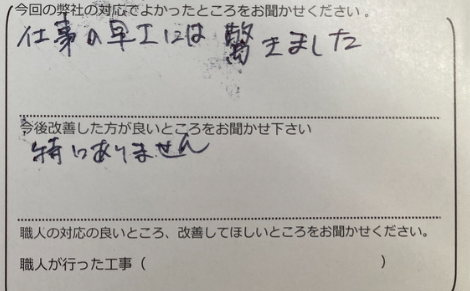 今回の弊社の対応でよかったところをお聞かせください。
仕事の早エには驚きました
今後改善した方が良いところをお聞かせ下さい
特にありません
職人の対応の良いところ、改善してほしいところをお聞かせください。
職人が行った工事（　　　　　　　　　　）